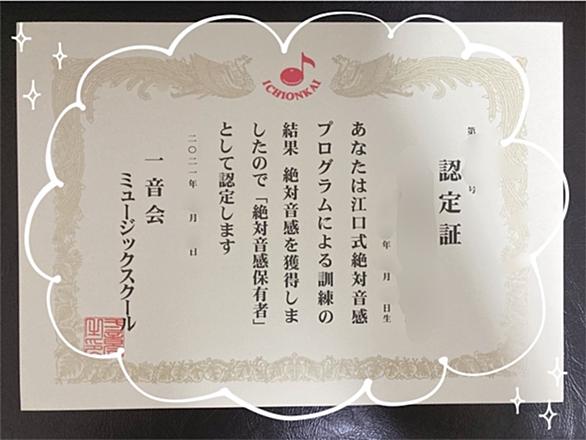 ICHIONKAI
第 号
認定証
年 月 日生
あなたは江口式絶対音感
プログラムによる訓練の
結果 絶対音感を獲得しま
したので「絶対音感保有者」
として認定します
二〇二一年 月 日
一音会
ミュージックスクール